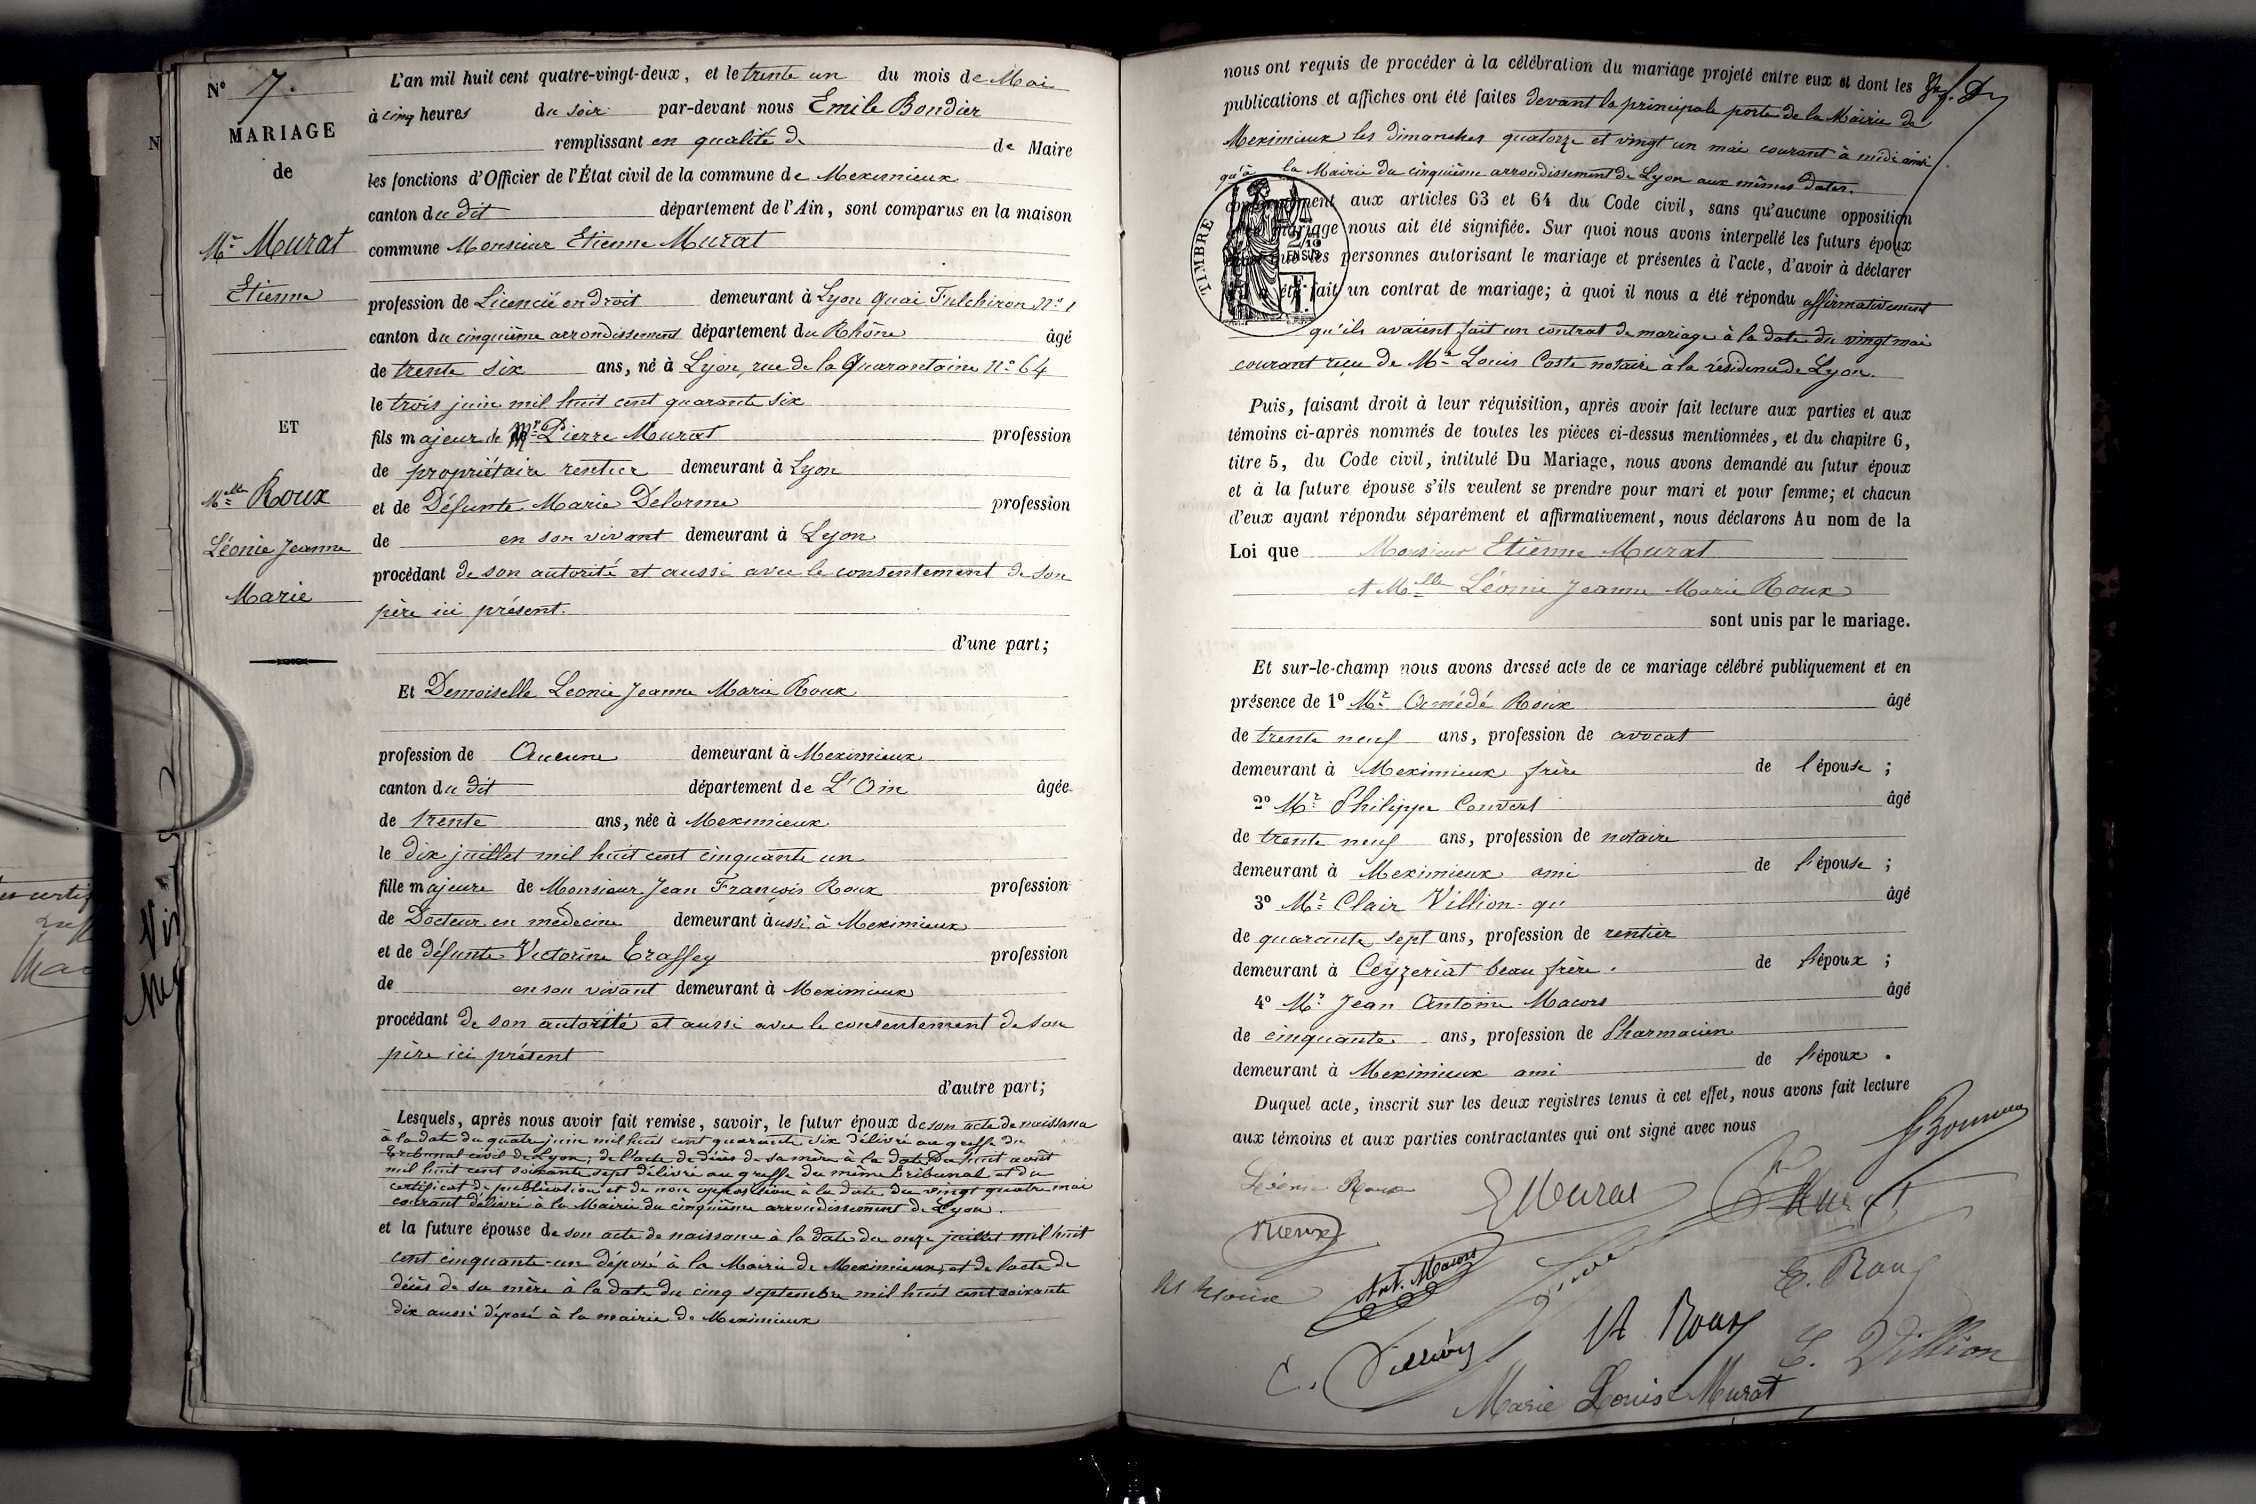 N° 7.
MARIAGE
de
Mr Murat
Etienne
ET
Melle Roux
Léonie Jeanne
Marie
L'an mil huit cent quatre-vingt-deux, et le trente un du mois de Mai
à cinq heures du soir par-devant nous Emile Bondier
remplissant en qualité de de Maire
les fonctions d'Officier de l'État civil de la commune de Meximieux
canton du dit département de l'Ain, sont comparus en la maison
commune Monsieur Etienne Murat
profession de Licencié en droit demeurant à Lyon quai Fulchiron n° 1
canton du cinquième arrondissement département du Rhône âgé
de trente six ans, né à Lyon, rue de la Quarantaine n° 64
le trois juin mil huit cent quarante six
fils majeur de Mr Pierre Murat profession
de propriétaire rentier demeurant à Lyon
et de Défunte Marie Delorme profession
de en son vivant demeurant à Lyon
procédant de son autorité et aussi avec le consentement de son
père ici présent.
d'une part;
Et Demoiselle Leonie Jeanne Marie Roux
profession de Aucune demeurant à Meximieux
canton du dit département de L'Ain âgée
de trente ans, née à Meximieux
le dix juillet mil huit cent cinquante un
fille majeure de Monsieur Jean François Roux profession
de Docteur en médecine demeurant aussi à Meximieux
et de défunte Victorine Traffey profession
de en son vivant demeurant à Meximieux
procédant de son autorité et aussi avec le consentement de son
père ici présent
d'autre part;
Lesquels, après nous avoir fait remise, savoir, le futur époux de son acte de naissance
à la date du quatre juin mil huit cent quarante six délivré au greffe du
Tribunal civil de Lyon; de l'acte de décès de sa mère à la date du huit août
mil huit cent soixante sept délivré au greffe du même tribunal et du
certificat de publication et de non opposition à la date du vingt quatre mai
courant délivré à la Mairie du cinquième arrondissement de Lyon.
et la future épouse de son acte de naissance à la date du onze juillet mil huit
cent cinquante-un déposé à la Mairie de Meximieux, et de l'acte de
décès de sa mère à la date du cinq septembre mil huit cent soixante
dix aussi déposé à la mairie de Meximieux
nous ont requis de procéder à la célébration du mariage projeté entre eux et dont les
publications et affiches ont été faites devant la principale porte de la Mairie de
Meximieux les dimanches quatorze et vingt un mai courant à midi ainsi
qu'à la Mairie du cinquième arrondissement de Lyon aux mêmes dates.
conformément aux articles 63 et 64 du Code civil, sans qu'aucune opposition
mariage nous ait été signifiée. Sur quoi nous avons interpellé les futurs époux
que les personnes autorisant le mariage et présentes à l'acte, d'avoir à déclarer
été fait un contrat de mariage; à quoi il nous a été répondu affirmativement
TIMBRE
qu'ils avaient fait un contrat de mariage à la date du vingt mai
courant reçu de Me Louis Coste notaire à la résidence de Lyon.
Puis, faisant droit à leur réquisition, après avoir fait lecture aux parties et aux
témoins ci-après nommés de toutes les pièces ci-dessus mentionnées, et du chapitre 6,
titre 5, du Code civil, intitulé Du Mariage, nous avons demandé au futur époux
et à la future épouse s'ils veulent se prendre pour mari et pour femme; et chacun
d'eux ayant répondu séparément et affirmativement, nous déclarons Au nom de la
Loi que Monsieur Etienne Murat
et Melle Léonie Jeanne Marie Roux
sont unis par le mariage.
Et sur-le-champ nous avons dressé acte de ce mariage célébré publiquement et en
présence de 1° Mr Amédé Roux âgé
de trente neuf ans, profession de avocat
demeurant à Meximieux frère de l'épouse;
2° Mr Philippe Convert âgé
de trente neuf ans, profession de notaire
demeurant à Meximieux ami de l'épouse;
3° Mr Clair Villion âgé
de quarante sept ans, profession de rentier
demeurant à Ceyzeriat beau frère. de l'époux;
4° Mr Jean Antoine Macors âgé
de cinquante ans, profession de Pharmacien
demeurant à Meximieux ami de l'époux.
Duquel acte, inscrit sur les deux registres tenus à cet effet, nous avons fait lecture
aux témoins et aux parties contractantes qui ont signé avec nous
Léonie Roux
E Murat
Murat
Roux
Ant. Macors
E. Roux
A Roux
C. Villion
Marie Louise Murat